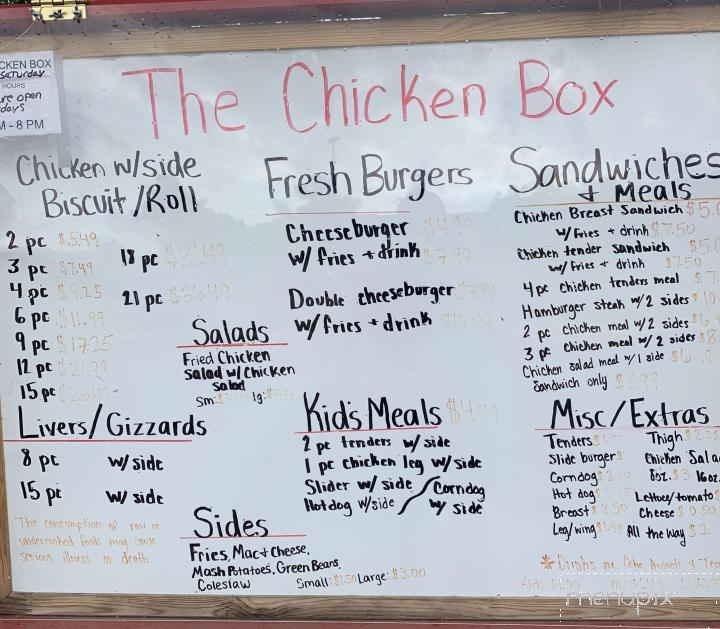 CKEN BOX
Saturday
HOURS
re open
days
M - 8 PM
The Chicken Box
Chicken w/side
Biscuit/Roll
2 pc $5.49
3 pc $7.49
4 pc $9.25
6 pc $11.99
9 pc $17.25
12 pc
15 pc
18 pc
21 pc $36.49
Salads
Fried Chicken
Salad w/Chicken
Salad
Sm: lg:
Livers/Gizzards
8 pc w/side
15 pc w/side
The consumption of raw or
undercooked foods may cause
serious illness or death.
Fresh Burgers
Cheeseburger
w/ fries + drink
Double cheeseburger
w/ fries + drink
Kid's Meals $4.49
2 pc tenders w/ side
1 pc chicken leg w/ side
Slider w/ side / Corndog
Hotdog w/side / w/ side
Sides
Fries, Mac+Cheese,
Mash Potatoes, Green Beans,
Coleslaw Small: $1.50 Large: $3.00
Sandwiches
+ Meals
Chicken Breast Sandwich $5.
w/ Fries + drink $7.50
Chicken tender sandwich $5.
w/ Fries + drink $7.50
4 pc chicken tenders meal $7
Hamburger steak w/2 sides $10
2 pc chicken meal w/2 sides $6
3 pc chicken meal w/2 sides $8
Chicken salad meal w/1 side $6
Sandwich only $3.99
Misc/Extras
Tenders Thigh
Slide burger Chicken Sala
Corndog 8oz. $3 16oz.
Hot dog Lettuce/tomato $
Breast $2.50 Cheese $0.50
Leg/wing All the Way $1
* Drinks are Coke Products + Tea
menupix